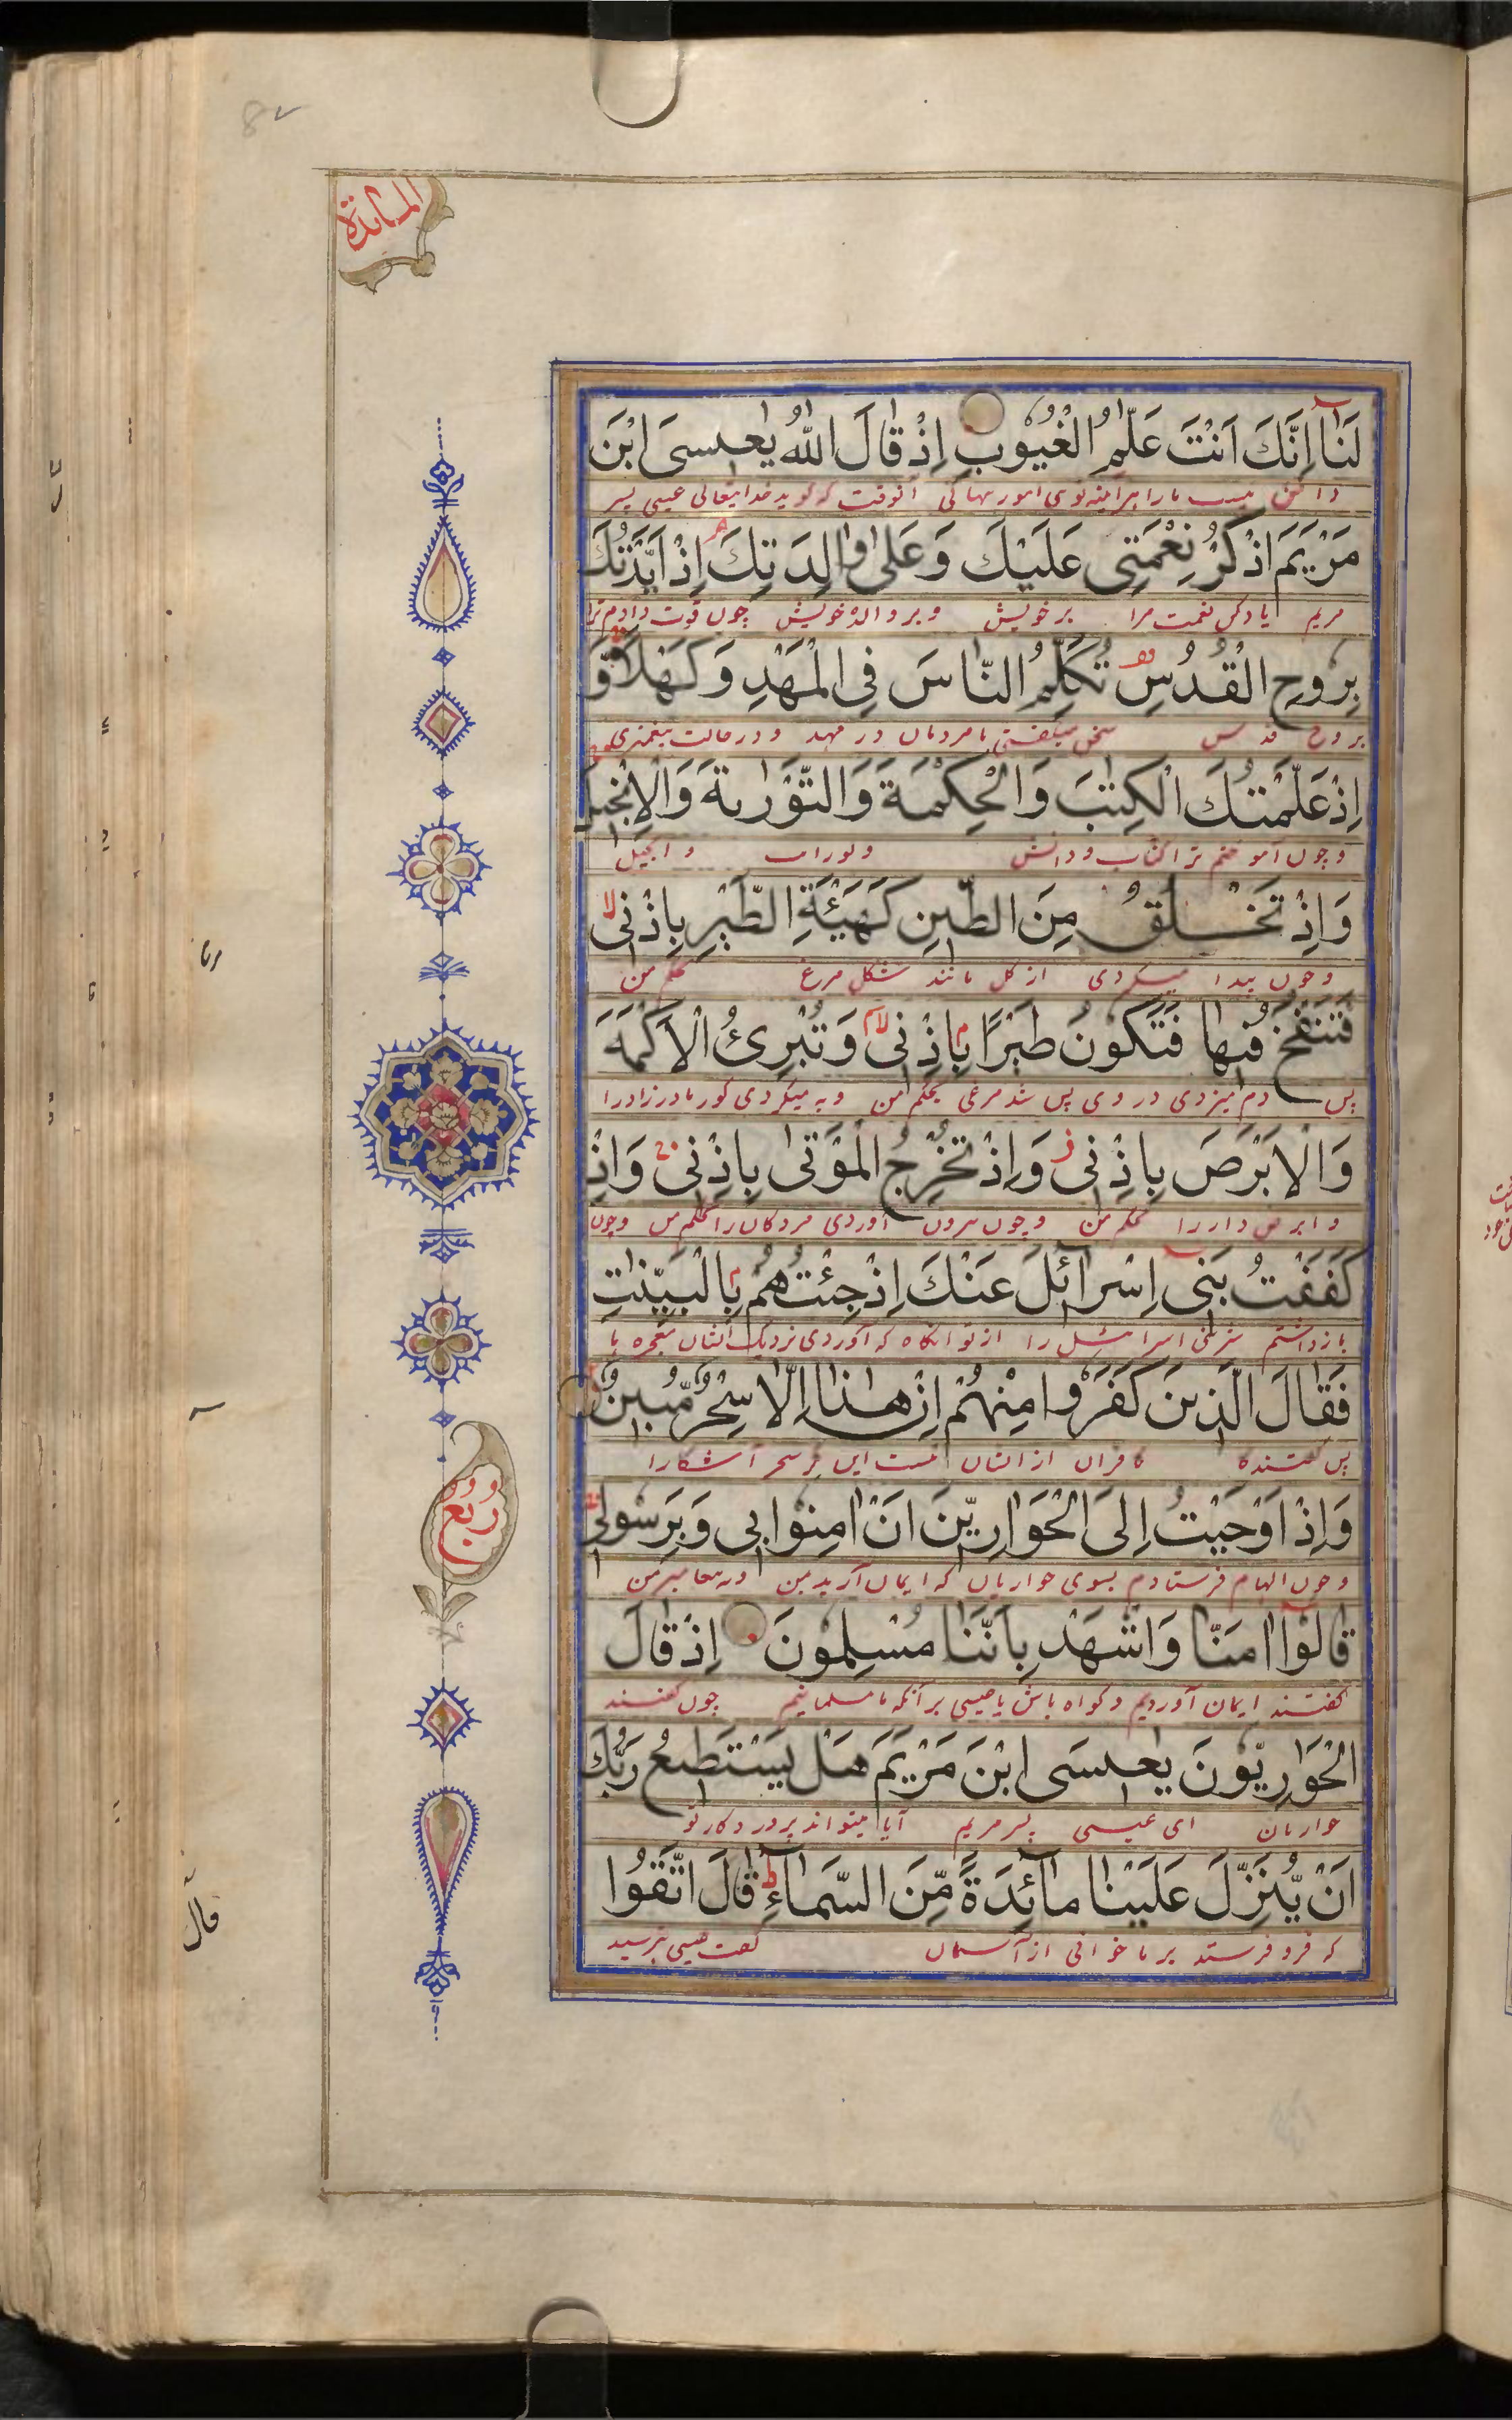 المائدة
لَنَا اِنَّكَ اَنْتَ عَلّٰمُ الْغُيُوبِ اِذْ قَالَ اللّٰهُ يٰعِيسَى ابْنَ
مريم یاد کن نعمت مرا بر خویش و بر والدهٔ خویش چون قوت دادم ترا
مَرْيَمَ اذْكُرْ نِعْمَتِى عَلَيْكَ وَعَلٰى وَالِدَتِكَ اِذْ اَيَّدْتُكَ
بِرُوحِ الْقُدُسِ تُكَلِّمُ النَّاسَ فِى الْمَهْدِ وَكَهْلًا وَّ
بروح قدس سخن میگفتی با مردمان در مهد و در حالت پیغمبری
اِذْ عَلَّمْتُكَ الْكِتٰبَ وَالْحِكْمَةَ وَالتَّوْرٰىةَ وَالْاِنْجِيلَ
و چون آموختم ترا کتاب و دانش و توراة و انجیل
وَاِذْ تَخْلُقُ مِنَ الطِّينِ كَهَيْئَةِ الطَّيْرِ بِاِذْنِى
و چون پیدا میکردی از گل مانند شکل مرغ بحکم من
فَتَنْفُخُ فِيهَا فَتَكُونُ طَيْرًا بِاِذْنِى وَتُبْرِئُ الْاَكْمَهَ
پس دم میزدی در وی پس شد مرغی بحکم من و به میکردی کور مادرزاد را
وَالْاَبْرَصَ بِاِذْنِى وَاِذْ تُخْرِجُ الْمَوْتٰى بِاِذْنِى وَاِذْ
و ابرص دار را بحکم من و چون بیرون آوردی مردکان را بحکم من و چون
كَفَفْتُ بَنِى اِسْرَآئِلَ عَنْكَ اِذْ جِئْتَهُمْ بِالْبَيِّنٰتِ
بازداشتم بنی اسرائیل را از تو آنکاه که آوردی نزدیک ایشان معجزه ها
فَقَالَ الَّذِينَ كَفَرُوا مِنْهُمْ اِنْ هٰذَا اِلَّا سِحْرٌ مُّبِينٌ
پس گفتند کافران از ایشان نیست این مگر سحر آشکارا
وَاِذْ اَوْحَيْتُ اِلَى الْحَوَارِيّنَ اَنْ اٰمِنُوا بِى وَبِرَسُولِى
ربع
و چون الهام فرستادم بسوی حواریان که ایمان آرید بمن و به پیغامبر من
قَالُوا اٰمَنَّا وَاشْهَدْ بِاَنَّنَا مُسْلِمُونَ اِذْ قَالَ
گفتند ایمان آوردیم و کواه باش یا عیسی بر آنکه ما مسلمانیم چون گفتند
الْحَوَارِيُّونَ يٰعِيسَى ابْنَ مَرْيَمَ هَلْ يَسْتَطِيعُ رَبُّكَ
حواریان ای عیسی پسر مریم آیا میتواند پروردکار تو
اَنْ يُّنَزِّلَ عَلَيْنَا مَآئِدَةً مِّنَ السَّمَآءِ قَالَ اتَّقُوا
که فرو فرستد بر ما خوانی از آسمان گفت عیسی بترسید
قال